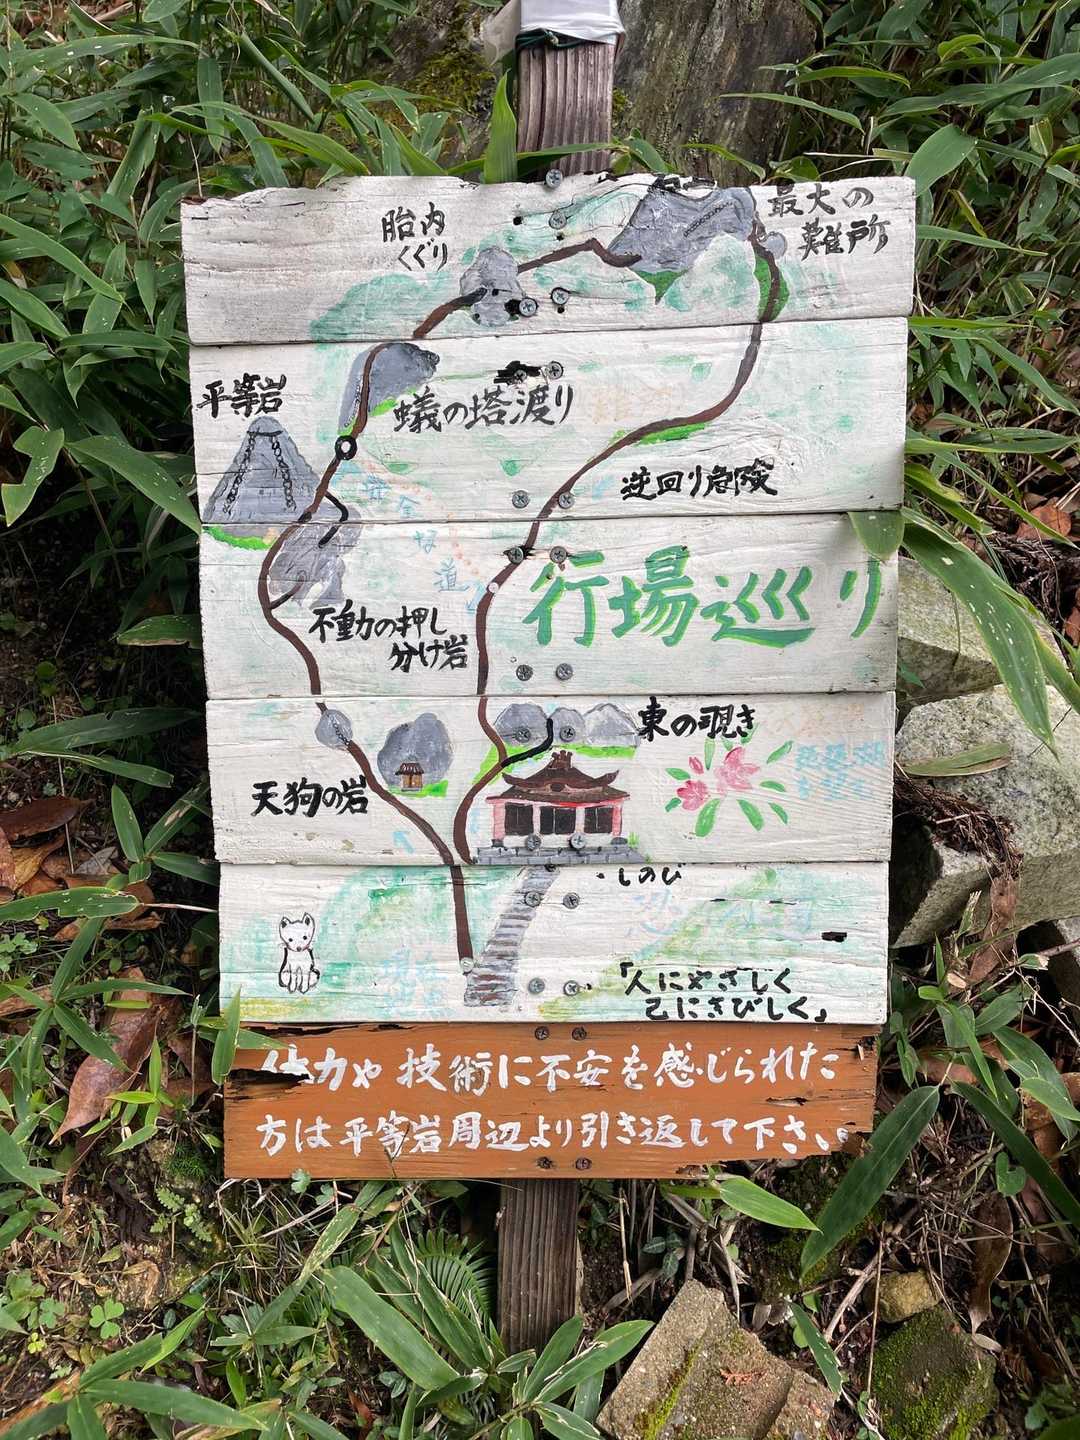 最大の
難所
胎内
くぐり
平等岩
蟻の塔渡り
逆回り危険
安全な道
行場巡り
不動の押し
分け岩
東の覗き
天狗の岩
・しのび
「人にやさしく
己にきびしく」
体力や技術に不安を感じられた
方は平等岩周辺より引き返して下さい。